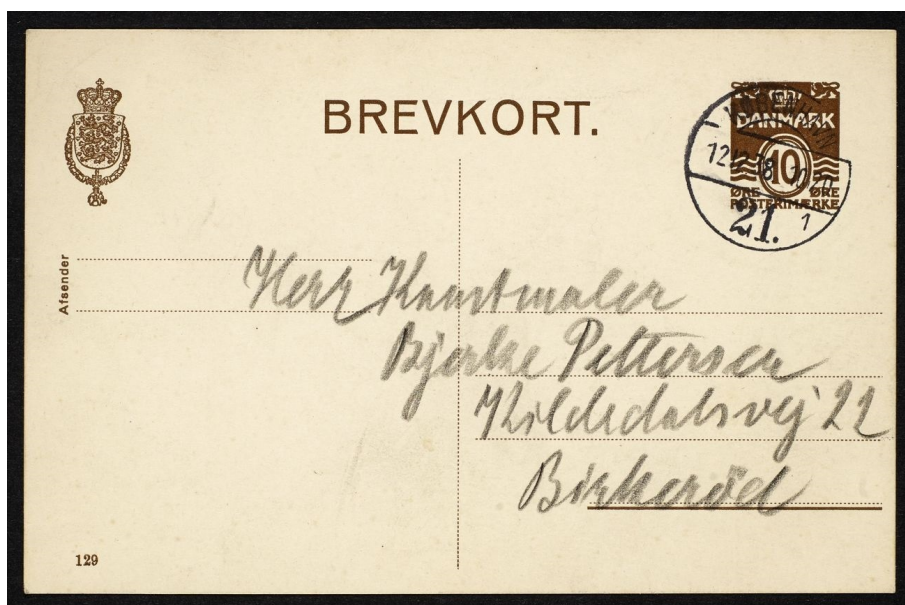 BREVKORT.
DANMARK
10
ØRE ØRE
POSTFRIMÆRKE
KØBENHAVN
12.12.38. 10-20
21. 1
Afsender
Herr Kunstmaler
Bjerke Pettersen
Kildedalsvej 22
Birkeröd
129